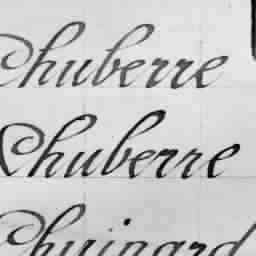 Chuberre
Chuberre
Chuinard